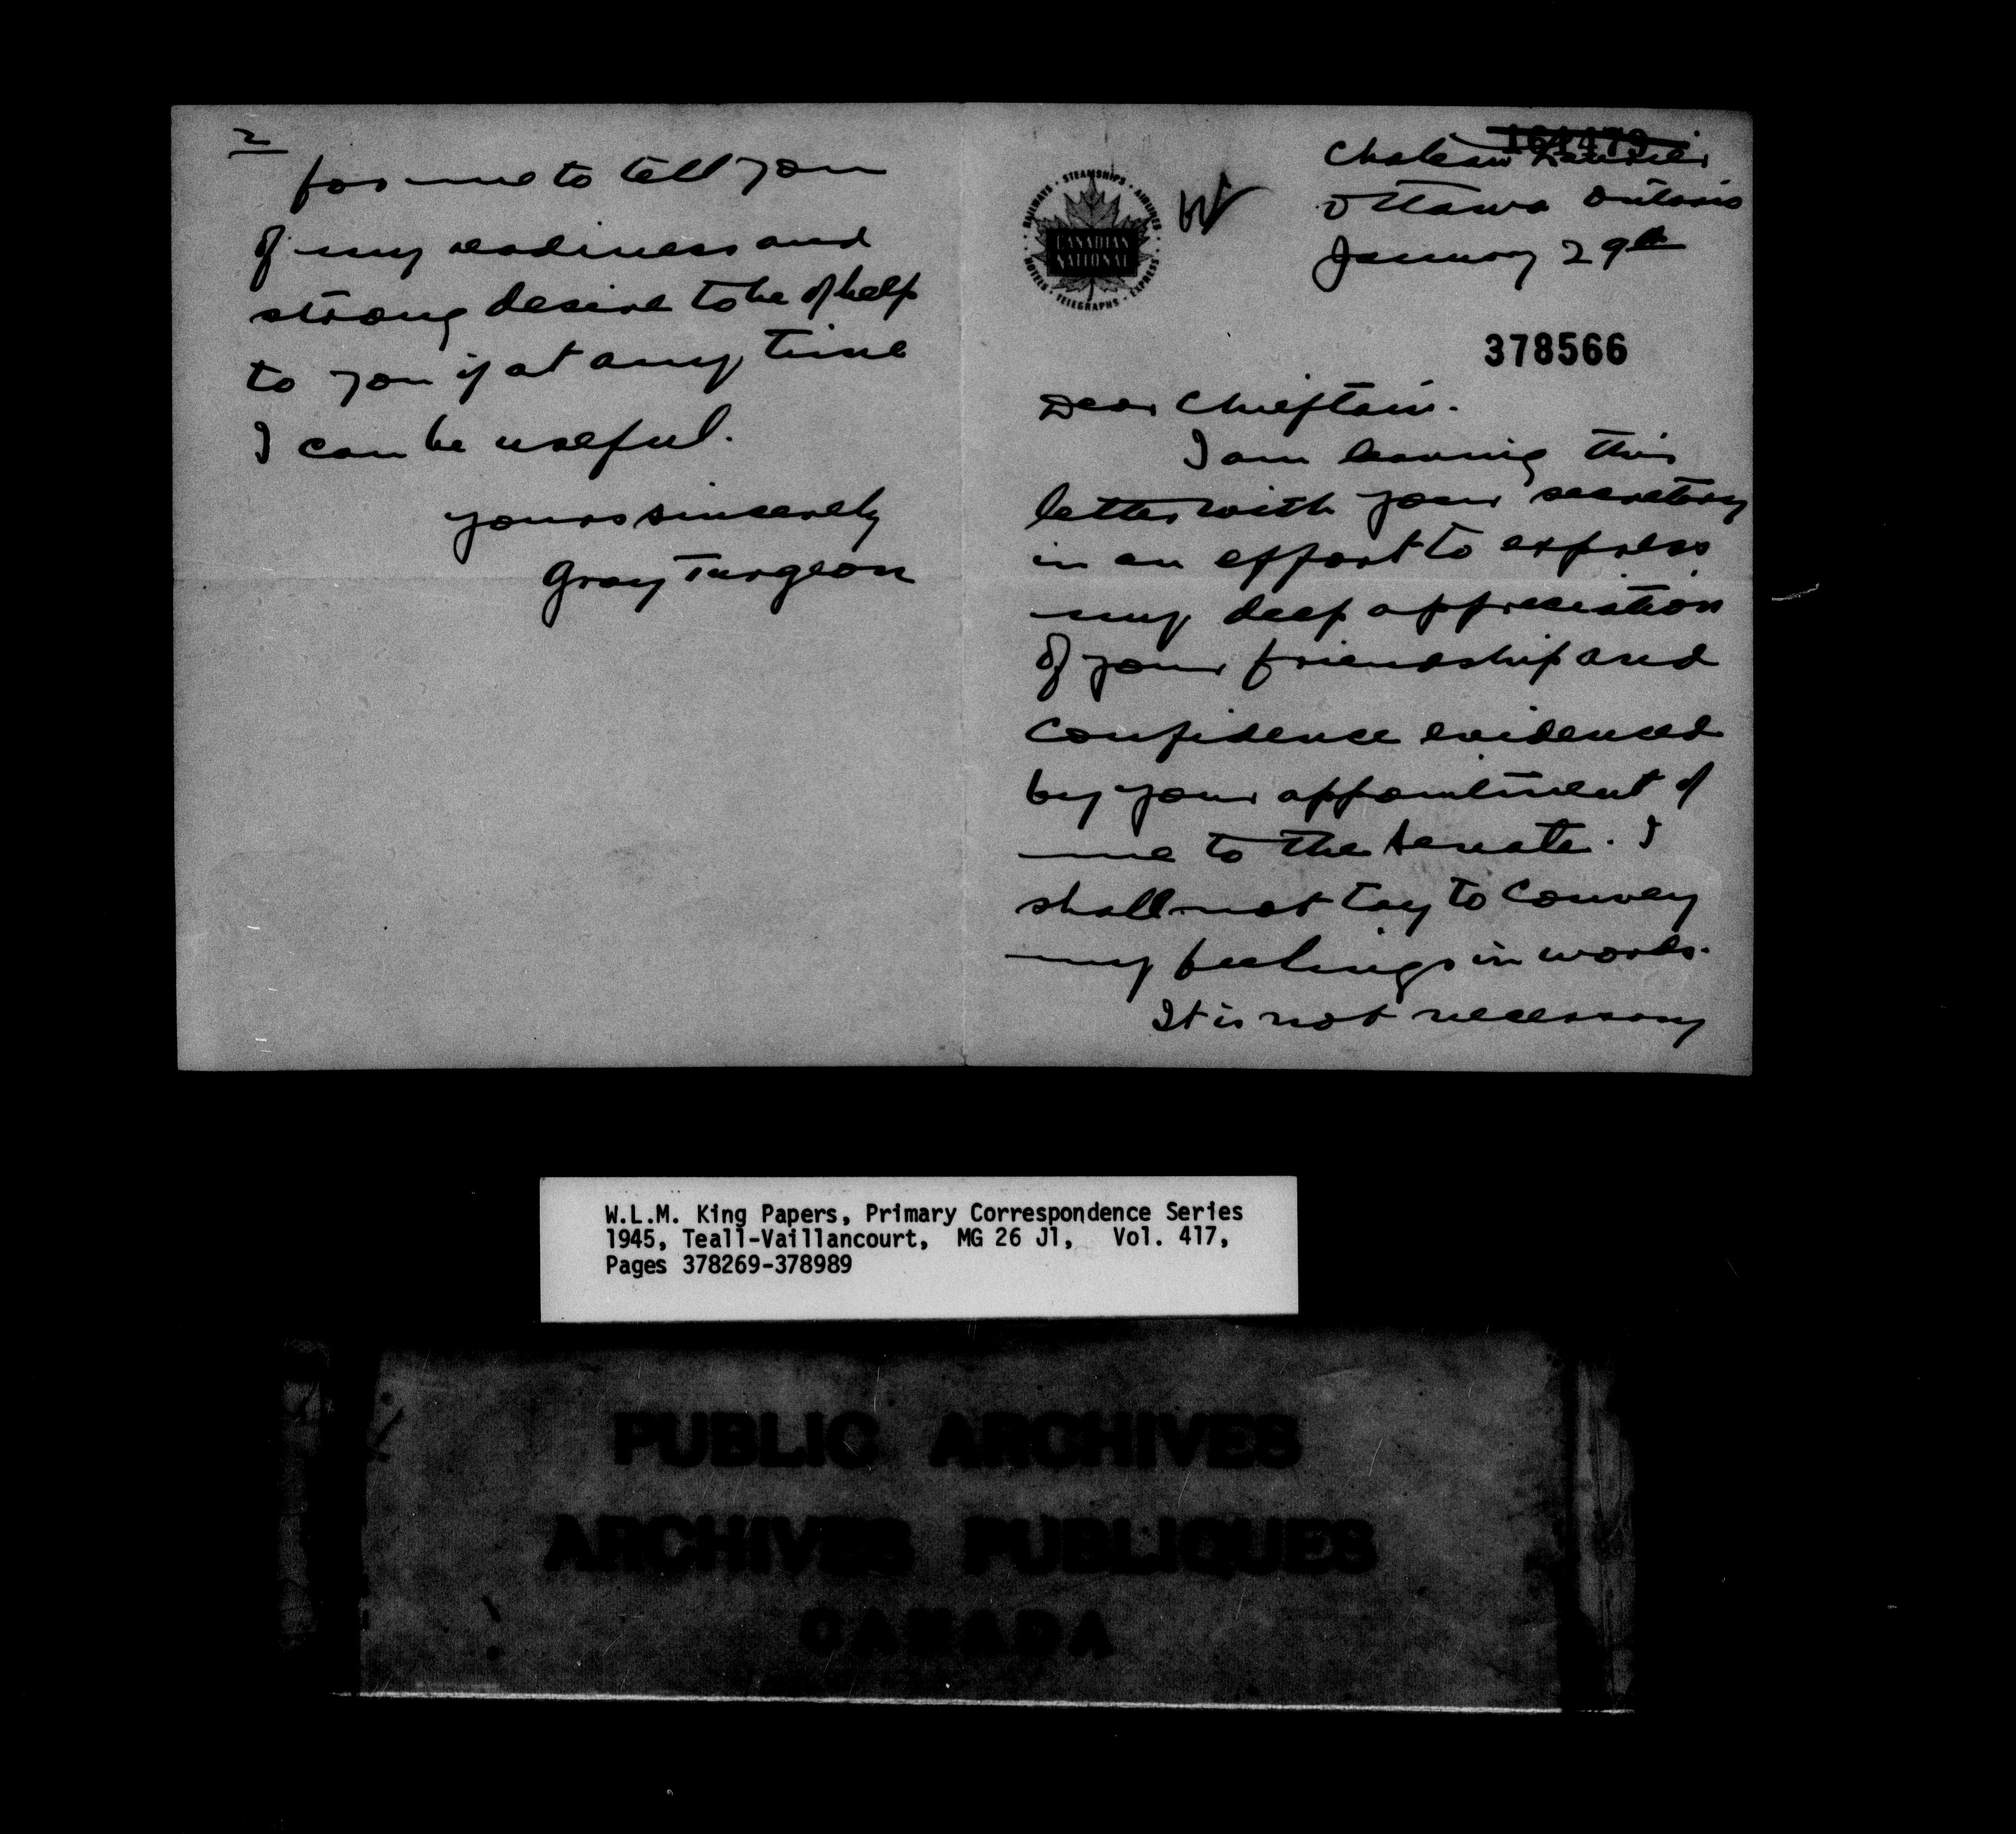 161479
Chateau Laurier
Ottawa Ontario
January 29th
RAILWAYS · STEAMSHIPS · AIRLINES
CANADIAN
NATIONAL
HOTELS · TELEGRAPHS · EXPRESS
378566
Dear Chieftain.
I am leaving this
letter with your secretary
in an effort to express
my deep appreciation
of your friendship and
confidence evidenced
by your appointment of
me to the Senate. I
shall not try to convey
my feelings in words.
It is not necessary
2
for me to tell you
of my readiness and
strong desire to be of help
to you if at any time
I can be useful.
yours sincerely
Gray Turgeon
W.L.M. King Papers, Primary Correspondence Series
1945, Teall-Vaillancourt, MG 26 J1, Vol. 417,
Pages 378269-378989
PUBLIC ARCHIVES
ARCHIVES PUBLIQUES
CANADA